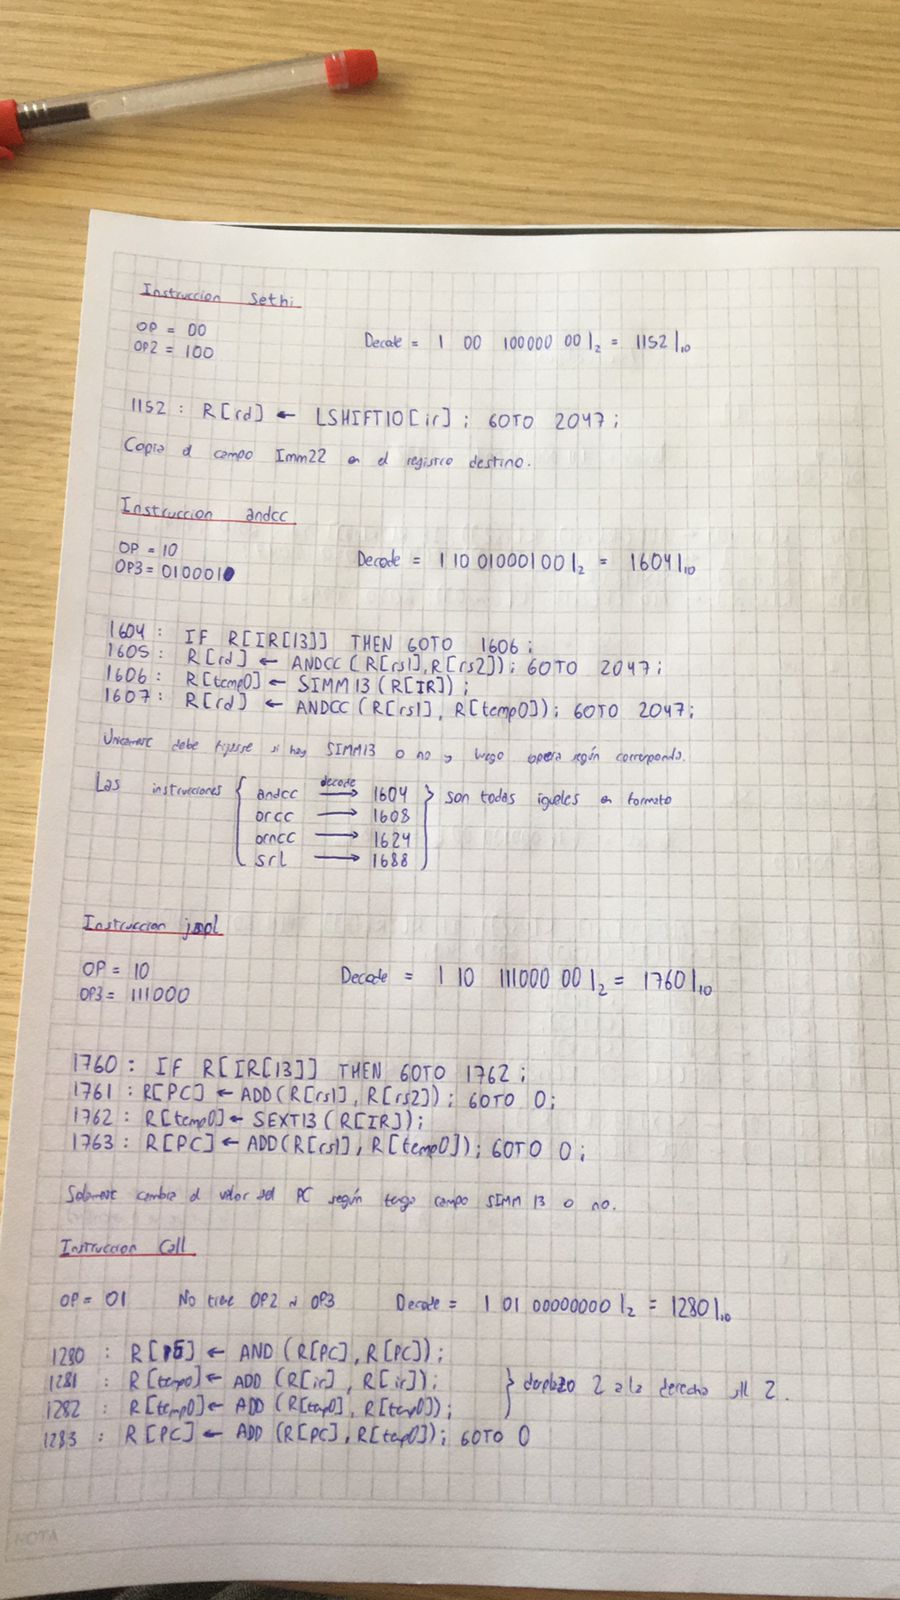 Instruccion Sethi
OP = 00
OP2 = 100
Decode = 1 00 100000 00|2 = 1152|10
1152 : R[rd] ← LSHIFT10[ir] ; GOTO 2047 ;
Copia el campo Imm22 en el registro destino.
Instruccion andcc
OP = 10
OP3 = 010001
Decode = 1 10 010001 00|2 = 1604|10
1604 : IF R[IR[13]] THEN GOTO 1606 ;
1605 : R[rd] ← ANDCC (R[rs1], R[rs2]) ; GOTO 2047 ;
1606 : R[temp0] ← SIMM13 (R[IR]) ;
1607 : R[rd] ← ANDCC (R[rs1], R[temp0]) ; GOTO 2047 ;
Unicamente debe fijarse si hay SIMM13 o no y luego opera según corresponda.
Las instrucciones { andcc decode → 1604 } son todas iguales en formato
orcc → 1608
orncc → 1624
srl → 1688
Instruccion jmpl
OP = 10
OP3 = 111000
Decode = 1 10 111000 00|2 = 1760|10
1760 : IF R[IR[13]] THEN GOTO 1762 ;
1761 : R[PC] ← ADD(R[rs1], R[rs2]) ; GOTO 0 ;
1762 : R[temp0] ← SEXT13 (R[IR]) ;
1763 : R[PC] ← ADD(R[rs1], R[temp0]) ; GOTO 0 ;
Solamente cambia el valor del PC según tenga campo SIMM 13 o no.
Instruccion Call
OP = 01 No tiene OP2 ni OP3 Decode = 1 01 00000000|2 = 1280|10
1280 : R[15] ← AND (R[PC], R[PC]) ;
1281 : R[temp0] ← ADD (R[ir], R[ir]) ;
1282 : R[temp0] ← ADD (R[temp0], R[temp0]) ;
} desplazo 2 a la derecha sll 2.
1283 : R[PC] ← ADD (R[PC], R[temp0]) ; GOTO 0
NOTA